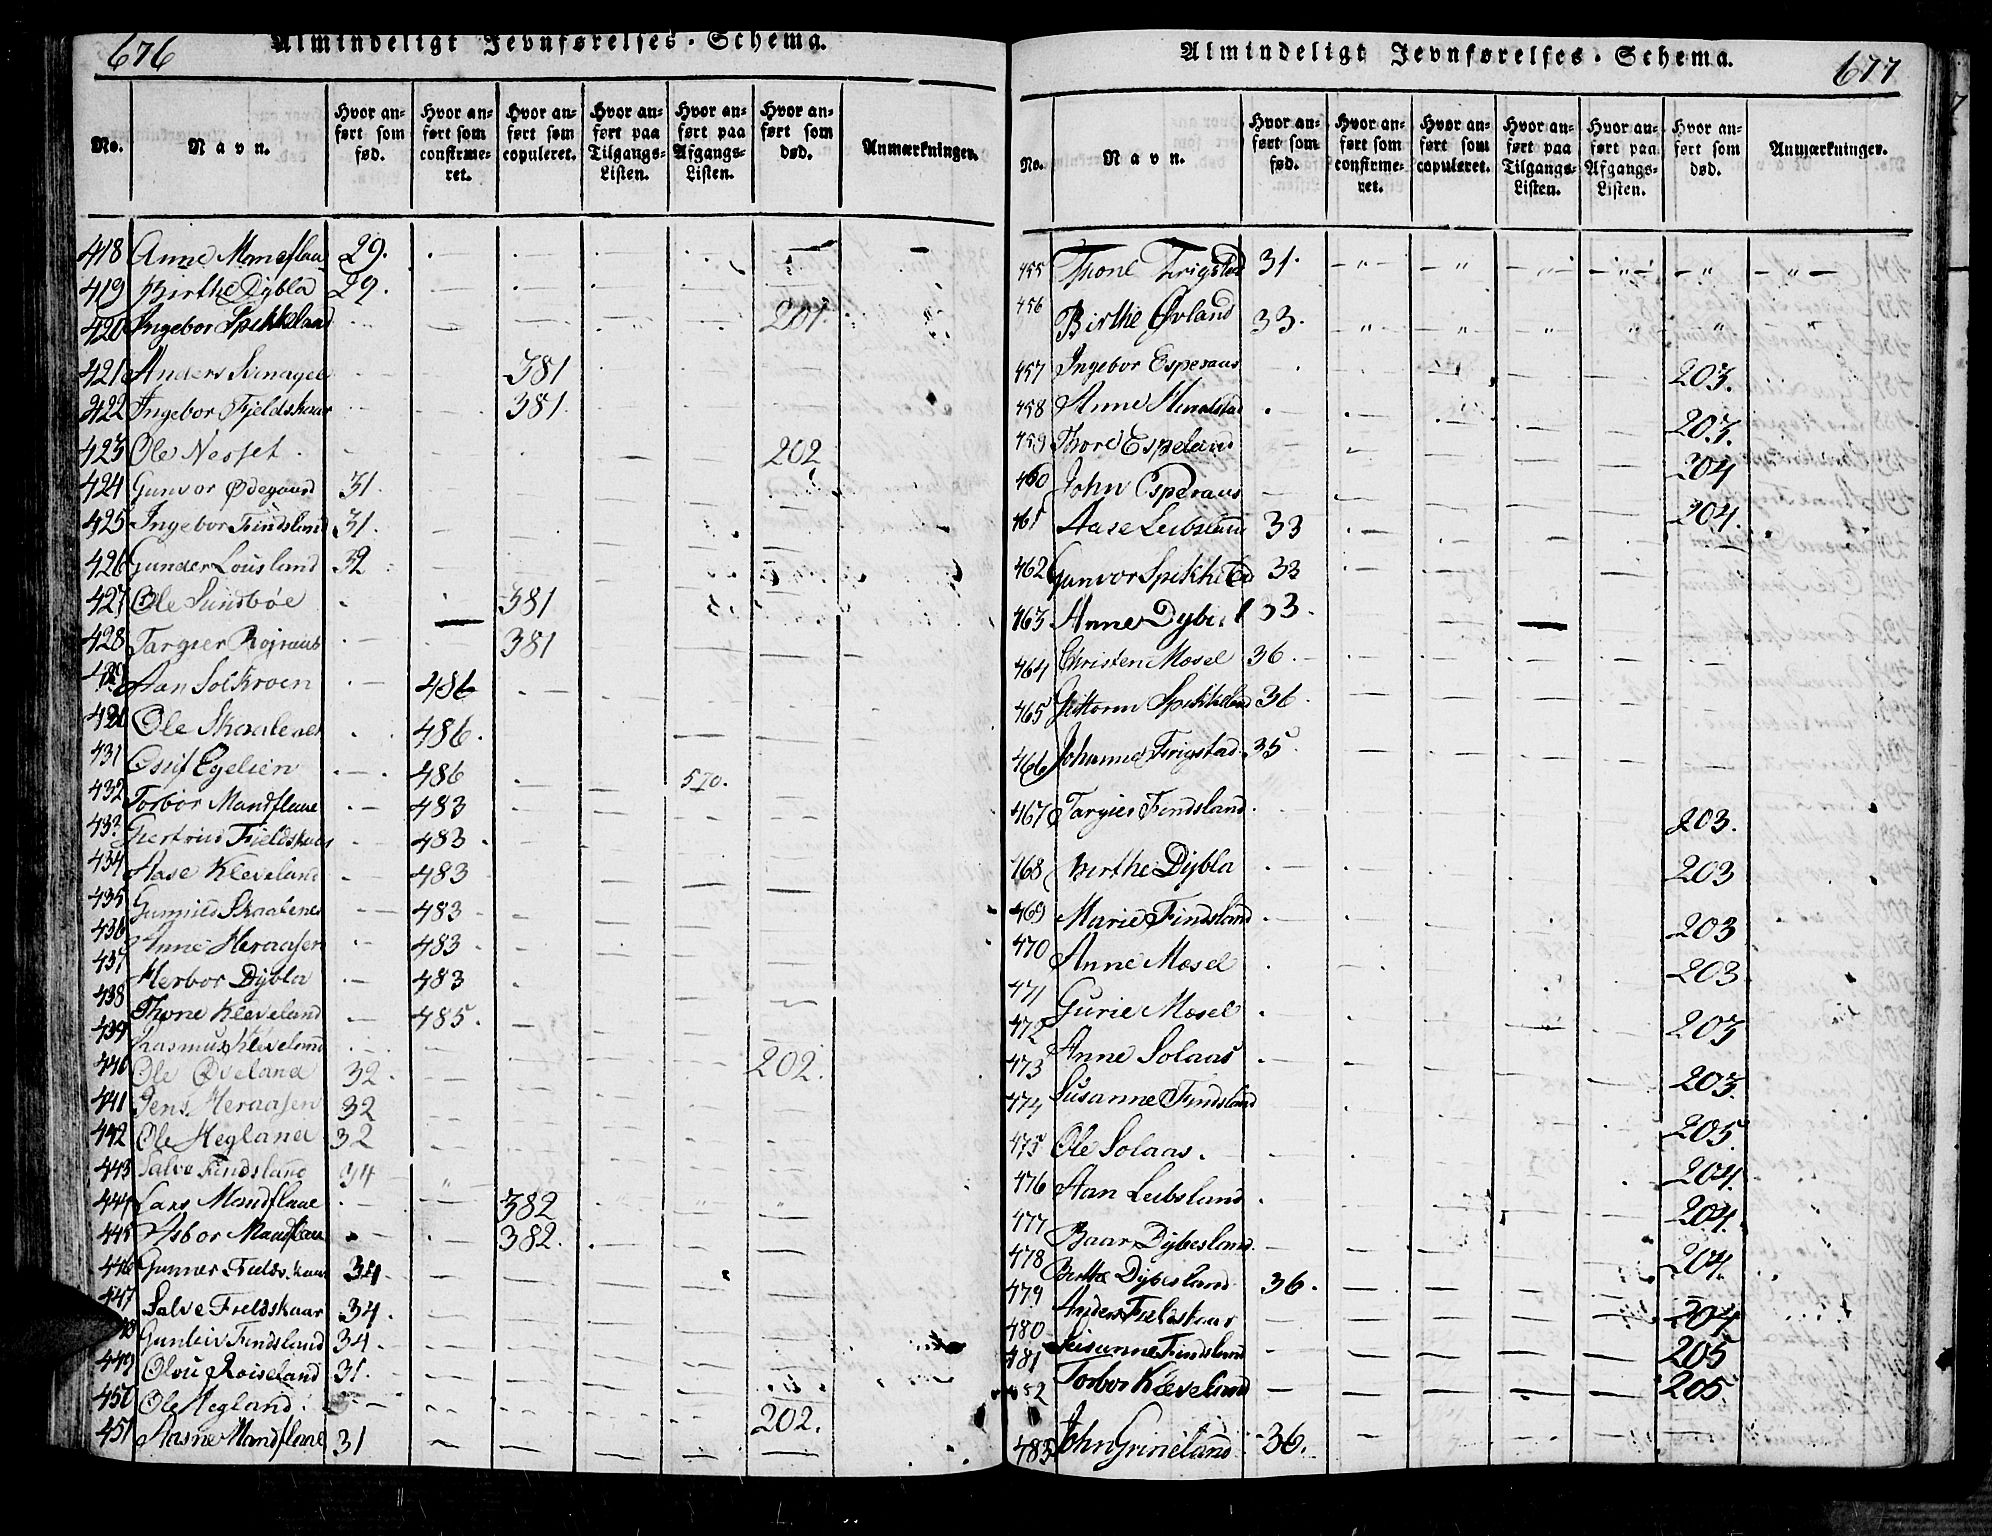 676
Almindeligt Jevnførelses-Schema.
No. Navn. Hvor anført som fød. Hvor anført som confirmeret. Hvor anført som copuleret. Hvor anført paa Tilgangs-Listen. Hvor anført paa Afgangs-Listen. Hvor anført som død. Anmærkninger.
418 Anne Mandflaa 29.
419 Birthe Dybla 29.
420 Ingebor Spikkeland 201.
421 Anders 381
422 Ingebor Fjeldskaar 381.
423 Ole Nesset 202
424 Gunvor Ødegaard 31.
425 Ingebor Findsland 31.
426 Gunder Lousland 32
427 Ole Sundbøe 381
428 Targier 381
429 Aan 486
430 Ole Skaatenes 486.
431 Osuf Egelien 486 570.
432 Torbor Mandflaae 483
433 Giertrud Fieldskaar 483.
434 Aase Kleveland 483
435 Gunnild Skaatenes 483
436 Anne Heraasen 483.
437 Herbor Dybla 483
438 Thone Kleveland 485.
439 Rasmus Kleveland 202.
440 Ole Øveland 32.
441 Jens Heraasen 32
442 Ole Hegland 32
443 Salve Findsland 34
444 Lars Mandflaae 382
445 Asbor Mandflaae 382.
446 Gunner Fieldskaar 34
447 Salve Fieldskaar 34.
448 Gunleiv Findsland 34
449 Olou Roiseland 31.
450 Ole Hegland 202.
451 Aasne Mandflaae 31
677
Almindeligt Jevnførelses-Schema.
No. Navn. Hvor anført som fød. Hvor anført som confirmeret. Hvor anført som copuleret. Hvor anført paa Tilgangs-Listen. Hvor anført paa Afgangs-Listen. Hvor anført som død. Anmærkninger.
455 Thone Frigsted 31.
456 Birthe Øvland 33.
457 Ingebor Esperaas 203.
458 Anne 203.
459 Thore Espeland 204
460 John Esperaas 204.
461 Aase Leibsland 33
462 Gunvor Spikkeland 33
463 Anne Dybla 33.
464 Christen Mosel 36.
465 Guttorm Spikkeland 36
466 Johanne Frigstad 35
467 Targier Findsland. 203.
468 Berthe Dybla 203
469 Marie Findsland 203
470 Anne Mosel 203
471 Gurie Mosel 203
472 Anne Solaas 203.
473 Susanne Findsland
474 205
475 Ole Solaas. 204.
476 Aan Leibsland 204.
477 Baar Dybesland. 204.
478 Berthe Dybesland 36.
479 Anders Fieldskaar 204
480 Susanne Findsland 205
481 Torbor Kleveland 205
482
483 John Grineland 36.